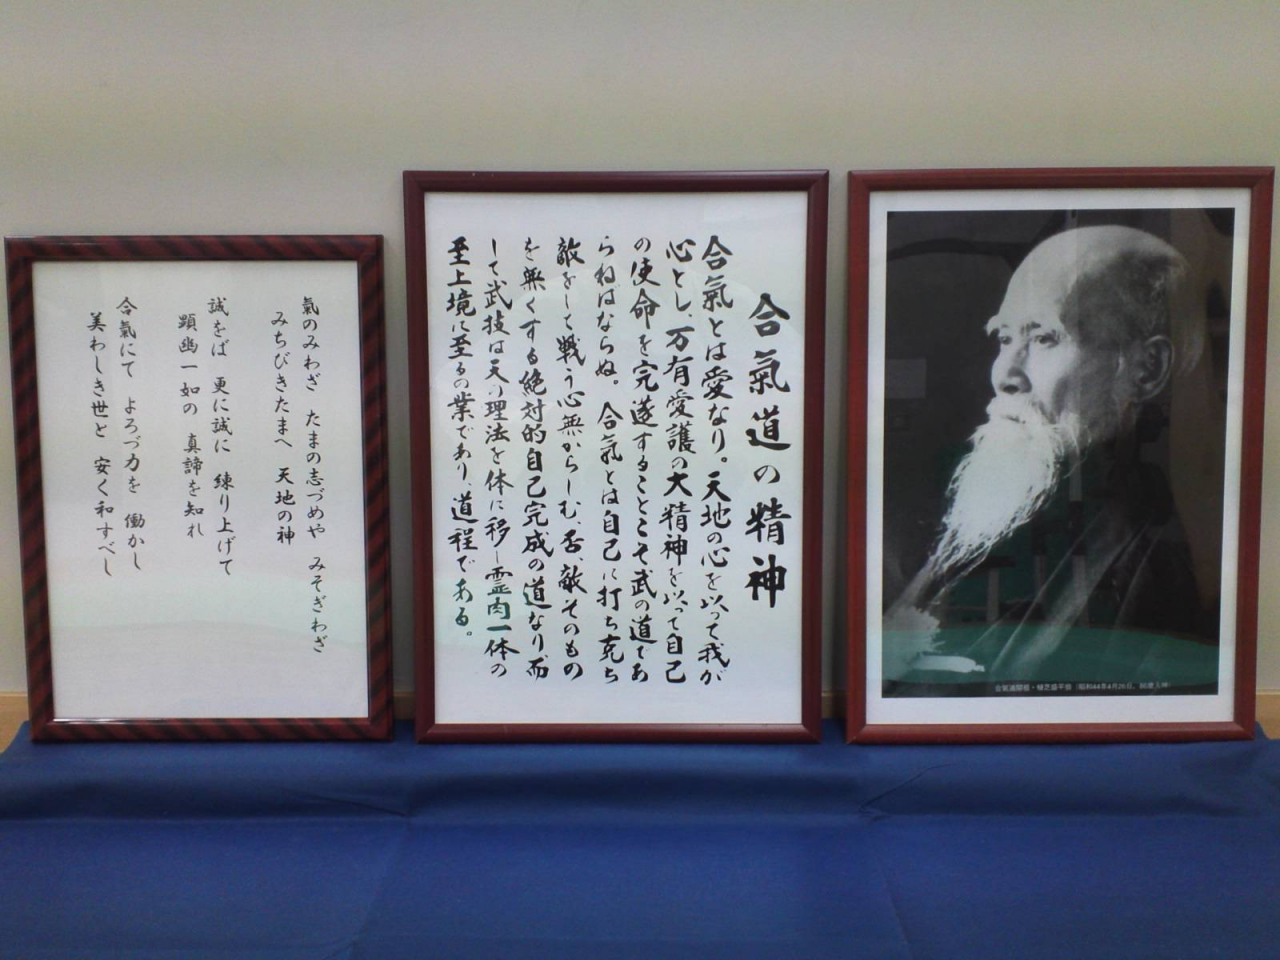 合氣道の精神
合氣とは愛なり。天地の心を以って我が
心とし、万有愛護の大精神を以って自己
の使命を完遂することこそ武の道であ
らねばならぬ。合氣とは自己に打ち克ち
敵をして戦う心無からしむ、否、敵そのもの
を無くする絶対的自己完成の道なり、而
して武技は天の理法を体に移し霊肉一体の
至上境に至るの業であり、道程である。
氣のみわざ たまの志づめや みそぎわざ
みちびきたまへ 天地の神
誠をば 更に誠に 練り上げて
顕幽一如の 真諦を知れ
合氣にて よろづ力を 働かし
美わしき世と 安く和すべし